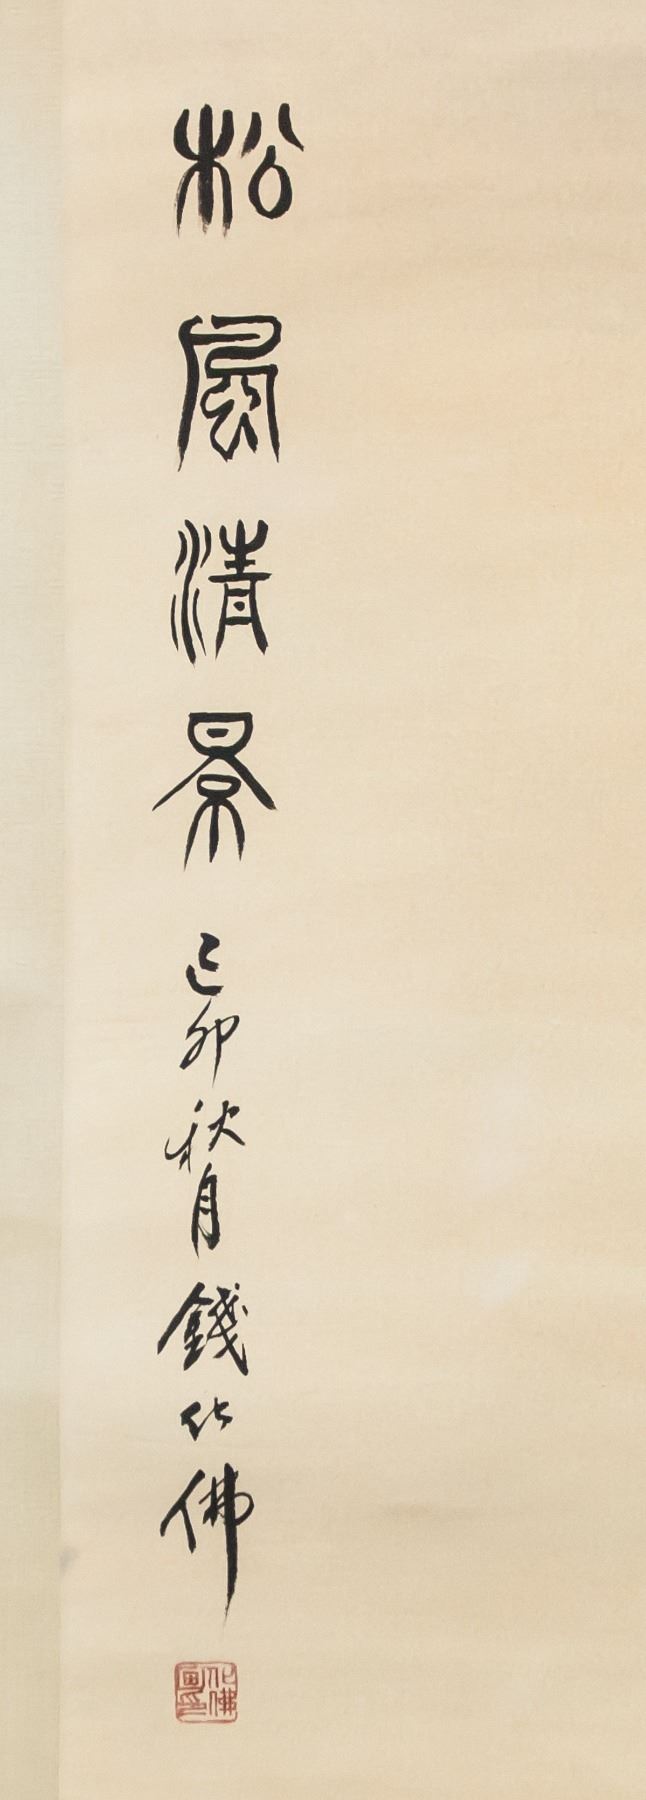 松風清景己卯秋月錢化佛
化佛畫印